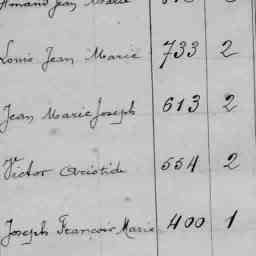 Jean Marie
Louis Jean Marie 733 2
Jean Marie Joseph 613 2
Victor Aristide 554 2
Joseph François Marie 400 1